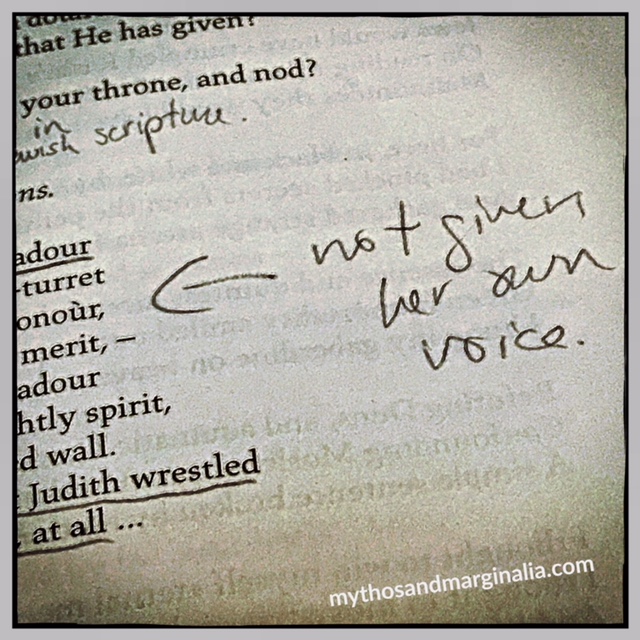 that He has given?
your throne, and nod?
in
wish scripture.
ns.
adour
-turret
onoùr,
merit, –
adour
htly spirit,
d wall.
Judith wrestled
, at all ...
← not given
her own
voice.
mythosandmarginalia.com